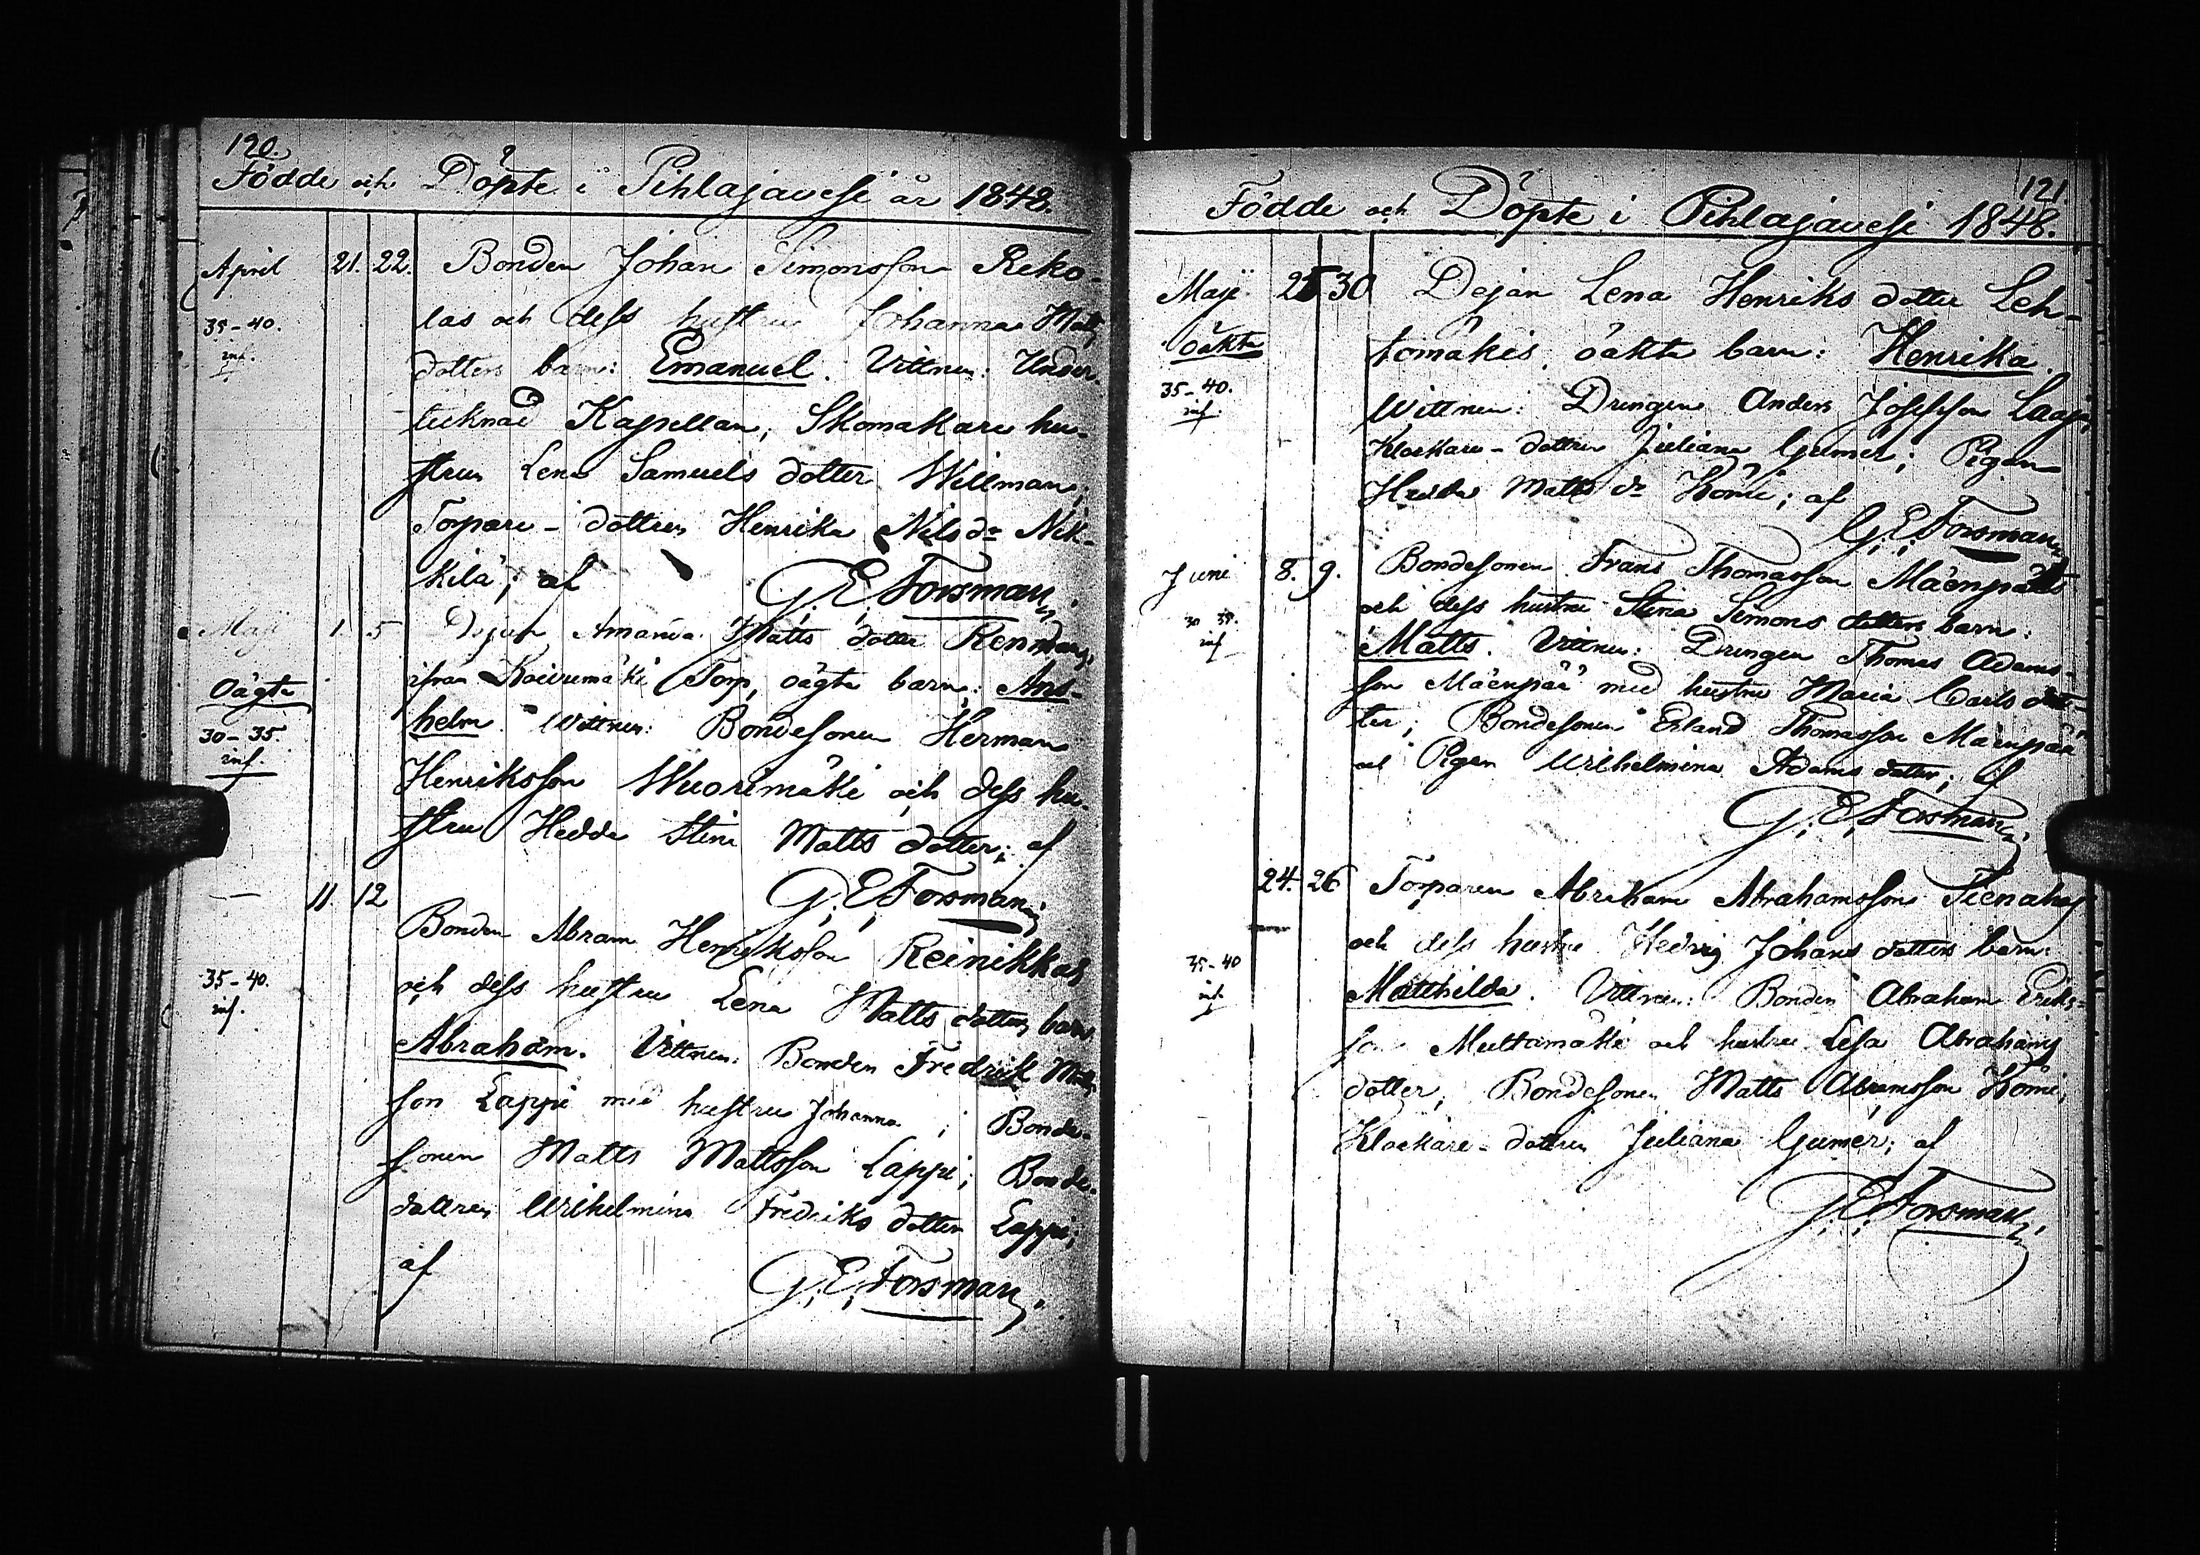 120.
Födde och Döpte i Pihlajavesi år 1848.
April 21. 22. Bonden Johan Simonsson Reko-
35-40. las och dess hustru Johanna Matts
inf. dotters barn: Emanuel. Vittnen: Under-
tecknad Kapellan, Skomakare hu-
strun Lena Samuels dotter Willman;
Torpare-dottren Henrika Nilsdr Nik-
kilä; af G. E. Forsman.
Maji 1. 5 Dejan Amanda Matts dotter
Oägta ifrån Koivumäki Torp, oägta barn: Ans-
30-35. helm. Wittnen: Bondesonen Herman
inf.
Henriksson Wuorimäki och dess hu-
stru Hedda Stina Matts dotter; af
G. E. Forsman
— 11 12
Bonden Abram Henriksson Reinikkas
35-40. och dess hustru Lena Matts dotters barn
inf.
Abraham. Vittnen: Bonden Fredrik Matts
son Lappi med hustru Johanna; Bonde-
sonen Matts Mattsson Lappi; Bonde-
dottren Wilhelmina Fredriks dotter Lappi;
af G. E. Forsman.
121.
Födde och Döpte i Pihlajavesi 1848.
Maji 25 30 Dejan Lena Henriks dotter Leh-
oäkta tomäkis oäkta barn: Henrika.
35-40. Wittnen: Drengen Anders Josefsson Laaja,
inf.
Klockare-dottren Juliana Gumér; Pigan
Hedda Matts dr Komi; af
G. E. Forsman
Juni 8. 9. Bondesonen Frans Thomasson Mäenpääs
30 35. och dess hustru Stina Simons dotters barn:
inf
Matts. Vittnen: Drengen Thomas Adams-
son Mäenpää med hustru Maria Carls dot-
ter; Bondesonen Erland Thomasson Mäenpää
och Pigan Wilhelmina Adams dotter; af
G. E. Forsman.
24. 26 Torparen Abraham Abrahamsson Tienahas
35-40 och dess hustru Hedvig Johans dotters barn:
inf.
Matthilda. Vittnen: Bonden Abraham Eriks-
son Multamäki och hustru Lesa Abrahams
dotter; Bondesonen Matts Abramsson Komi;
Klockare-dottren Juliana Gumér; af
G. E. Forsman.